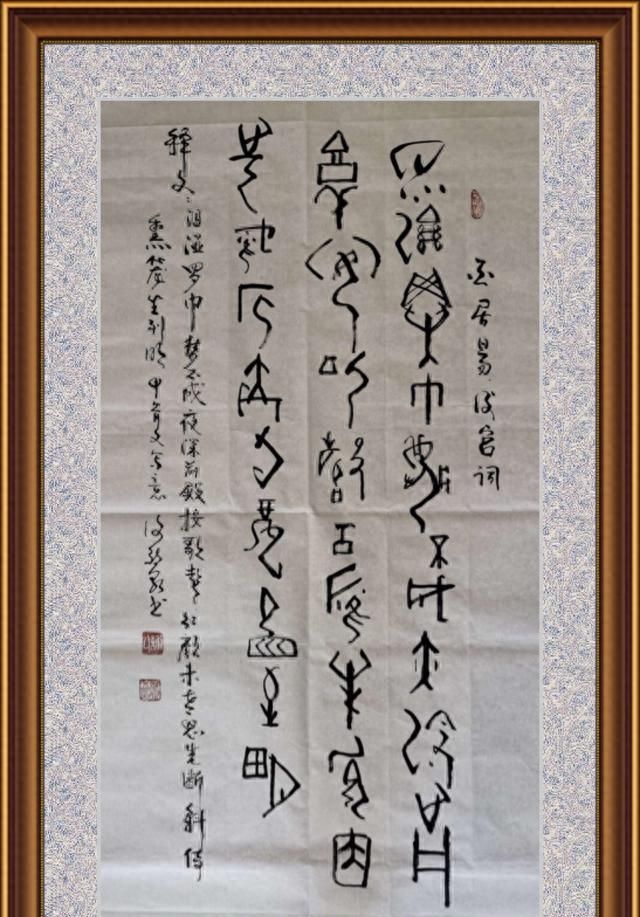 白居易後宫词
泪湿罗巾梦不成夜深前
殿按歌声红颜未老恩
先断斜倚熏笼坐到明
释文:泪湿罗巾梦不成夜深前殿按歌声红颜未老恩先断斜倚
熏笼坐到明 甲骨文意 书